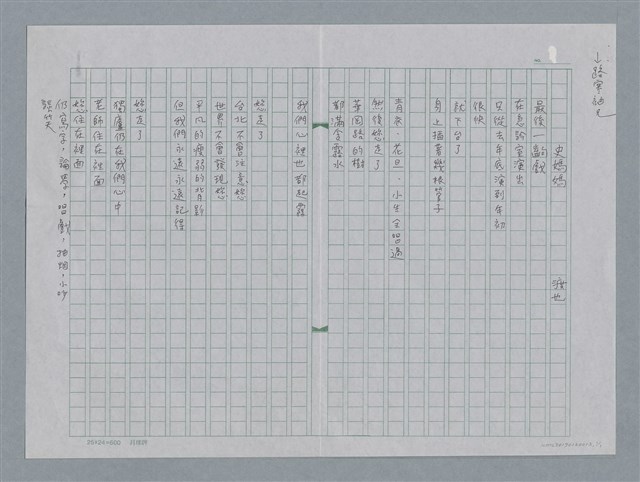 史媽媽
渡也
最後一齣戲
在急診室演出
只從去年底演到年初
很快
就下台了
身上插著幾根管子
青衣、花旦、小生全唱過
然後您走了
莘園路的樹
都滿含露水
我們心裡也都起霧
您走了
台北不會注意您
世界不會發現您
平凡的瘦弱的背影
但我們永遠永遠記得
您走了
獨廬仍在我們心中
老師住在裡面
您住在裡面
仍寫字，論學，唱戲，抽烟，小吵
談笑
25×24=600